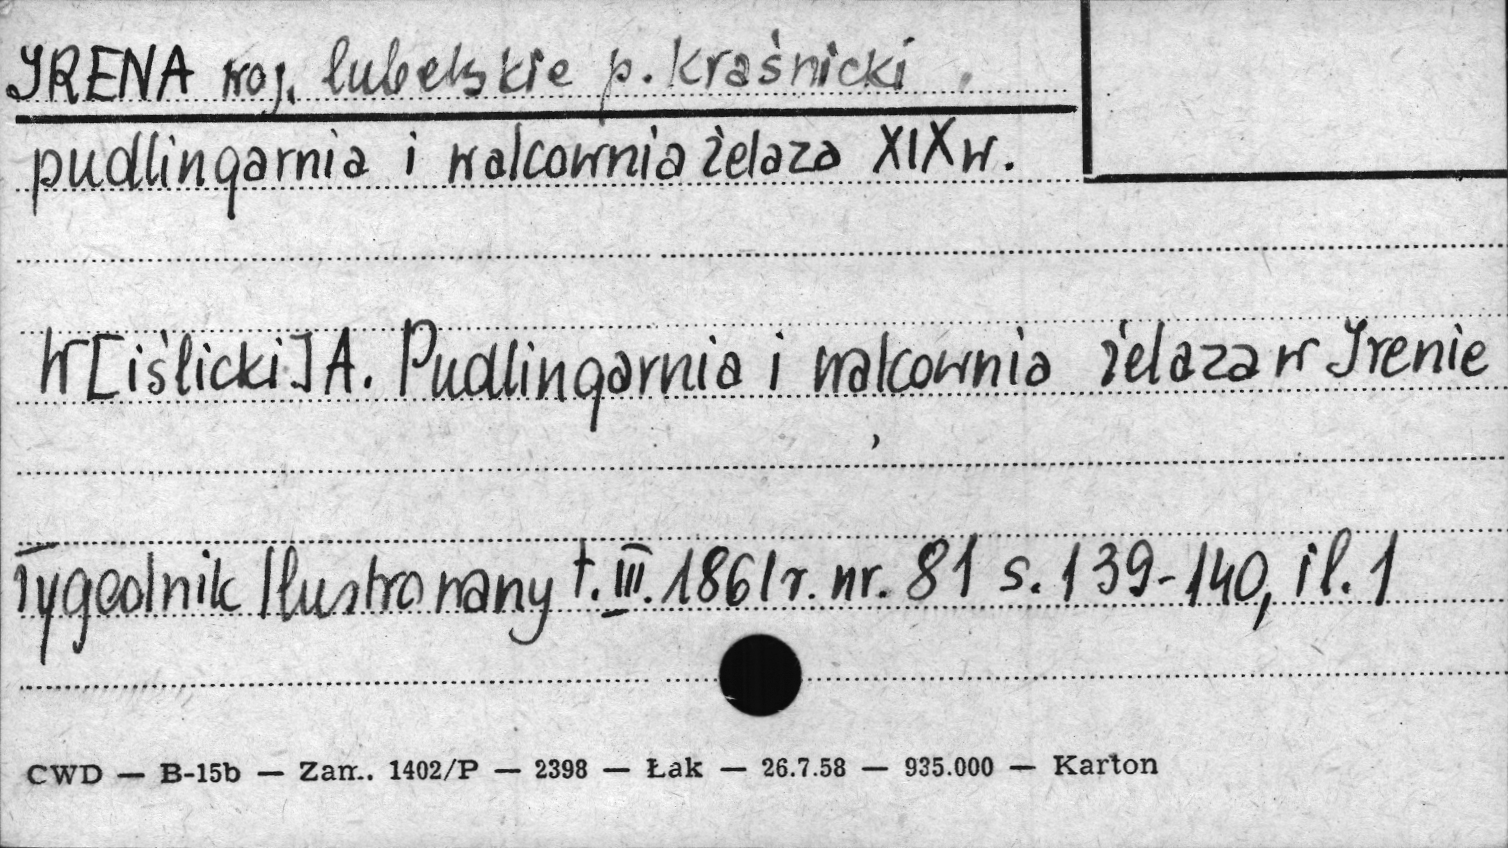 IRENA woj. lubelskie p. kraśnicki
pudlingarnia i walcownia żelaza XIX w.
W[iślicki] A. Pudlingarnia i walcownia żelaza w Irenie
Tygodnik Ilustrowany t. III. 1861 r. nr. 81 s. 139-140, il. 1
CWD — B-15b — Zam. 1402/P — 2398 — Łak — 26.7.58 — 935.000 — Karton